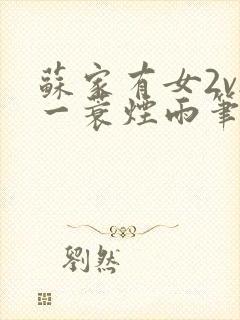 蘇家有女2v
一蓑煙雨筆
劉然